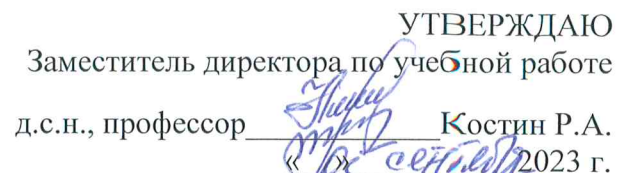 УТВЕРЖДАЮ
Заместитель директора по учебной работе
д.с.н., профессор____________Костин Р.А.
« » сентября 2023 г.